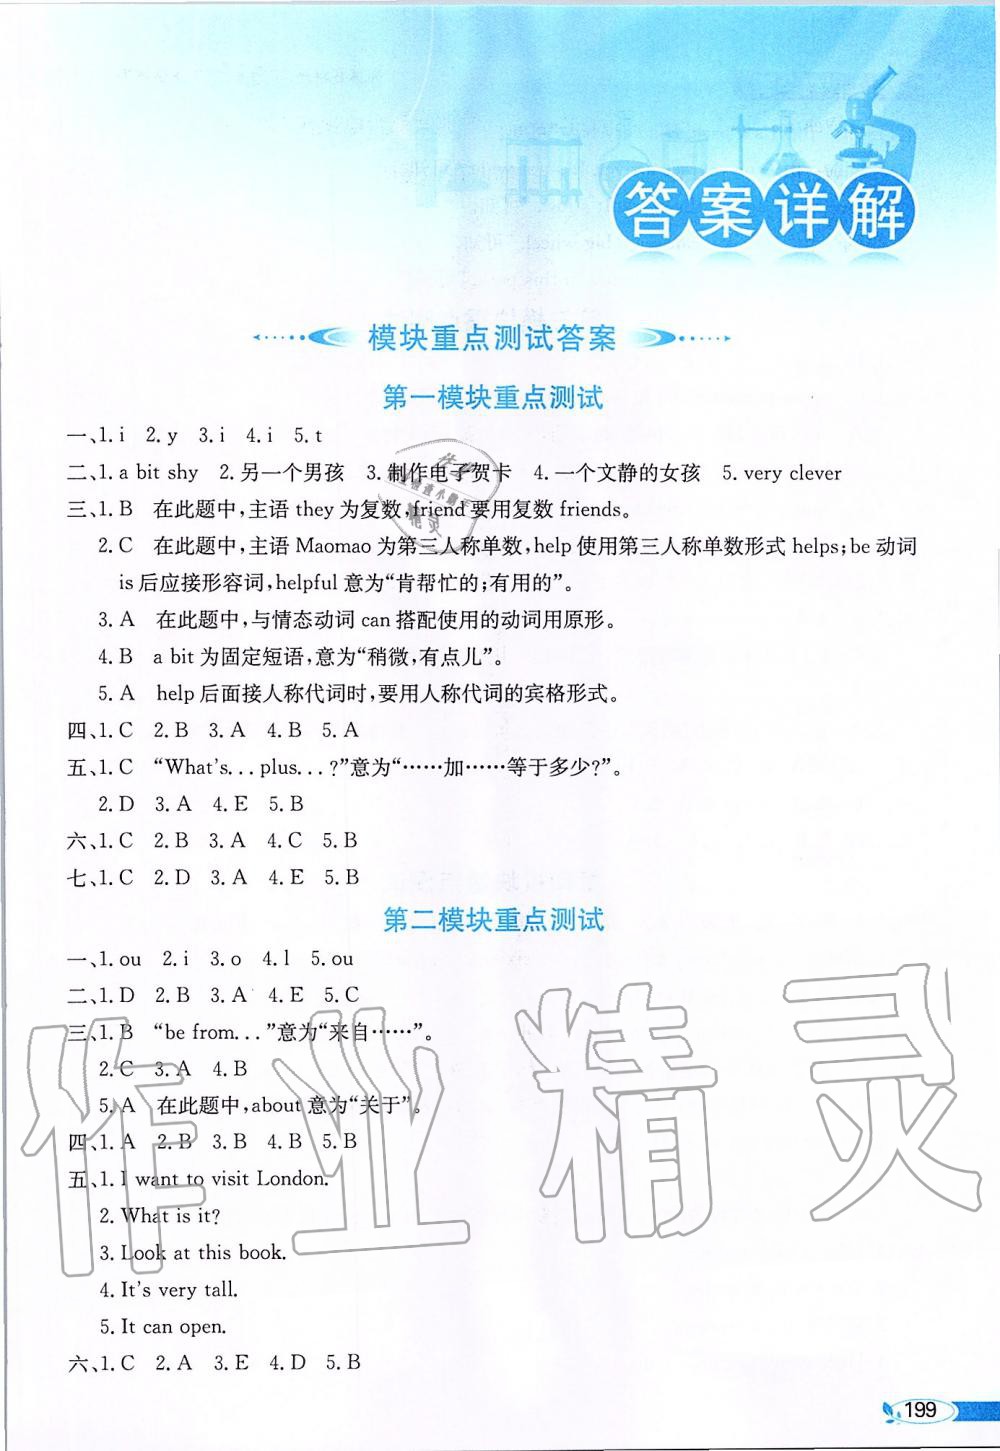 答案详解
模块重点测试答案
第一模块重点测试
一、1. i 2. y 3. i 4. i 5. t
二、1. a bit shy 2. 另一个男孩 3. 制作电子贺卡 4. 一个文静的女孩 5. very clever
三、1. B 在此题中,主语 they 为复数,friend 要用复数 friends。
2. C 在此题中,主语 Maomao 为第三人称单数,help 使用第三人称单数形式 helps;be 动词
is 后应接形容词,helpful 意为“肯帮忙的;有用的”。
3. A 在此题中,与情态动词 can 搭配使用的动词用原形。
4. B a bit 为固定短语,意为“稍微,有点儿”。
5. A help 后面接人称代词时,要用人称代词的宾格形式。
四、1. C 2. B 3. A 4. B 5. A
五、1. C “What's...plus...?”意为“……加……等于多少?”。
2. D 3. A 4. E 5. B
六、1. C 2. B 3. A 4. C 5. B
七、1. C 2. D 3. A 4. E 5. B
第二模块重点测试
一、1. ou 2. i 3. o 4. l 5. ou
二、1. D 2. B 3. A 4. E 5. C
三、1. B “be from...”意为“来自……”。
2. C 3. A 4. B
5. A 在此题中,about 意为“关于”。
四、1. A 2. B 3. B 4. B 5. B
五、1. I want to visit London.
2. What is it?
3. Look at this book.
4. It's very tall.
5. It can open.
六、1. C 2. A 3. E 4. D 5. B
作业精灵
199